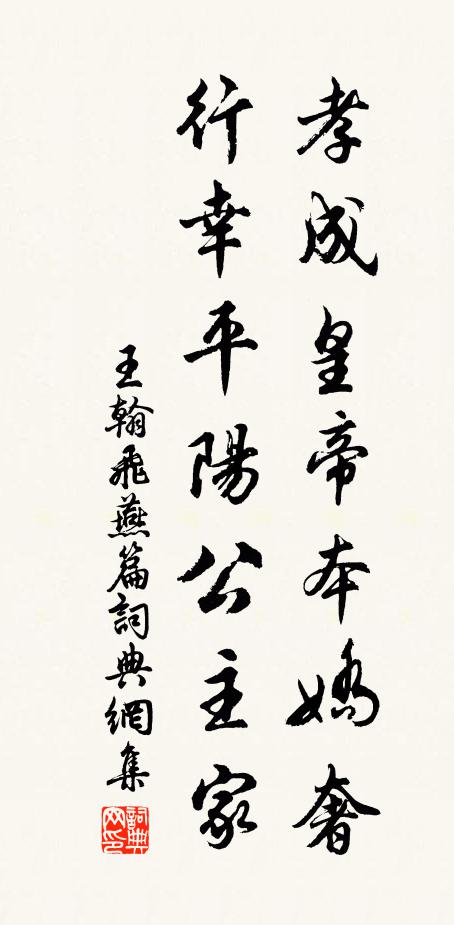 孝成皇帝本嬌奢
行幸平陽公主家
王翰飛燕篇詞典網集
詞典网印